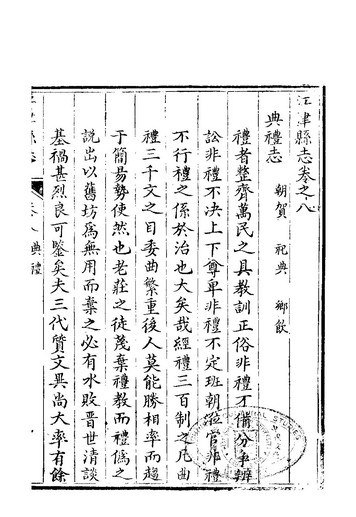 江津縣志卷之八
典禮志 朝賀 祀典 鄉飲
禮者整齊萬民之具教訓正俗非禮不備分爭辨
訟非禮不决上下尊卑非禮不定班朝涖官非禮
不行禮之係於治也大矣哉經禮三百制之凡曲
禮三千文之目委曲繁重後人莫能勝相率而趨
于簡易勢使然也老莊之徒蔑棄禮教而禮僞之
說出以舊坊爲無用而棄之必有水敗晋世清談
基禍甚烈良可鑒矣夫三代質文異尚大率有餘
江津縣志 卷八 典禮